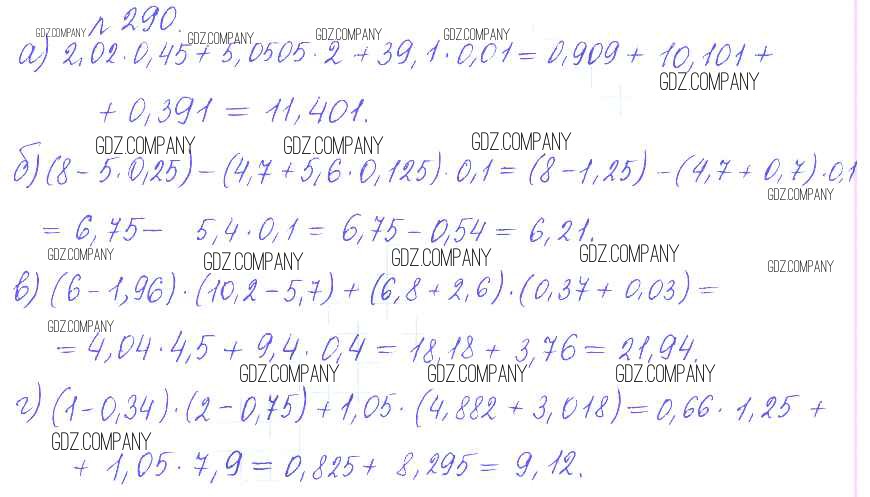 № 290.
GDZ.COMPANY GDZ.COMPANY GDZ.COMPANY GDZ.COMPANY
а) 2,02·0,45 + 5,0505·2 + 39,1·0,01 = 0,909 + 10,101 +
GDZ.COMPANY
+ 0,391 = 11,401.
GDZ.COMPANY GDZ.COMPANY GDZ.COMPANY
б) (8 - 5·0,25) - (4,7 + 5,6·0,125)·0,1 = (8 - 1,25) - (4,7 + 0,7)·0,1
GDZ.COMPANY
= 6,75 - 5,4·0,1 = 6,75 - 0,54 = 6,21.
GDZ.COMPANY GDZ.COMPANY GDZ.COMPANY GDZ.COMPANY GDZ.COMPANY
в) (6 - 1,96)·(10,2 - 5,7) + (6,8 + 2,6)·(0,37 + 0,03) =
GDZ.COMPANY
= 4,04·4,5 + 9,4·0,4 = 18,18 + 3,76 = 21,94.
GDZ.COMPANY GDZ.COMPANY GDZ.COMPANY
г) (1 - 0,34)·(2 - 0,75) + 1,05·(4,882 + 3,018) = 0,66·1,25 +
GDZ.COMPANY
+ 1,05·7,9 = 0,825 + 8,295 = 9,12.